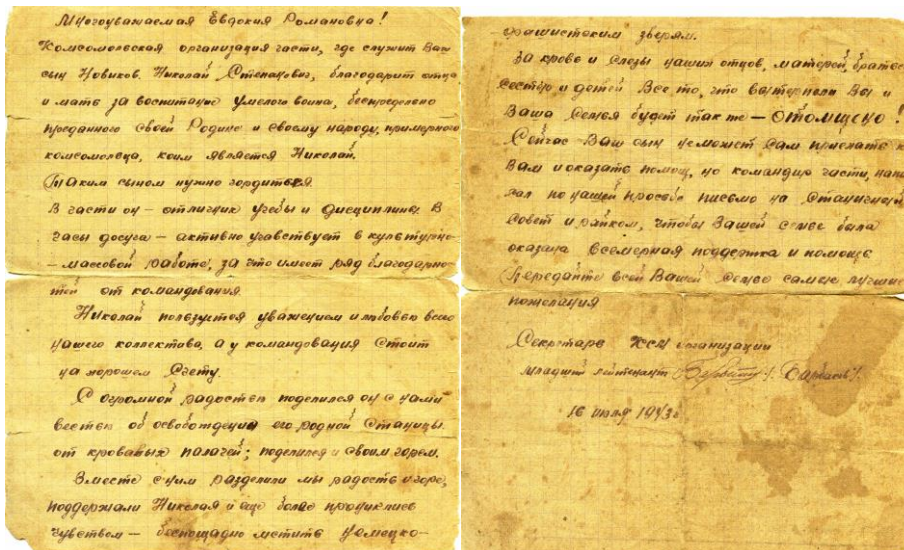 Многоуважаемая Евдокия Романовна!
Комсомольская организация части, где служит Ваш
сын Новиков. Николай Степанович, благодарит отца
и мать за воспитание умелого воина, беспредельно
преданного своей Родине и своему народу, примерного
комсомольца, коим является Николай.
Таким сыном нужно гордиться.
В части он — отличник учебы и дисциплины. В
часы досуга — активно участвует в культурно-
– массовой работе, за что имеет ряд благодарно-
стей от командования.
Николай пользуется уважением и любовью всего
нашего коллектива, а у командования стоит
на хорошем счету.
С огромной радостью поделился он с нами
вестью об освобождении его родной станицы
от кровавых палачей; поделился и своим горем.
Вместе с ним разделили мы радость и горе,
поддержали Николая и еще более прониклись
чувством — беспощадно мстить немецко-
-фашистским зверям.
За кровь и слезы наших отцов, матерей, братьев
сестёр и детей Все то, что вытерпели Вы и
Ваша семья будет так же — отомщено!
Сейчас Ваш сын неможет сам приехать к
Вам и оказать помощ, но командир части, напи
сал по нашей просьбе письмо на станичный
совет и райком, чтобы Вашей семье была
оказана всемерная поддержка и помощь
Передайте всей Вашей семье самые лучшие
пожелания
Секретарь КСМ организации
младший лейтенант
16 июля 1943г